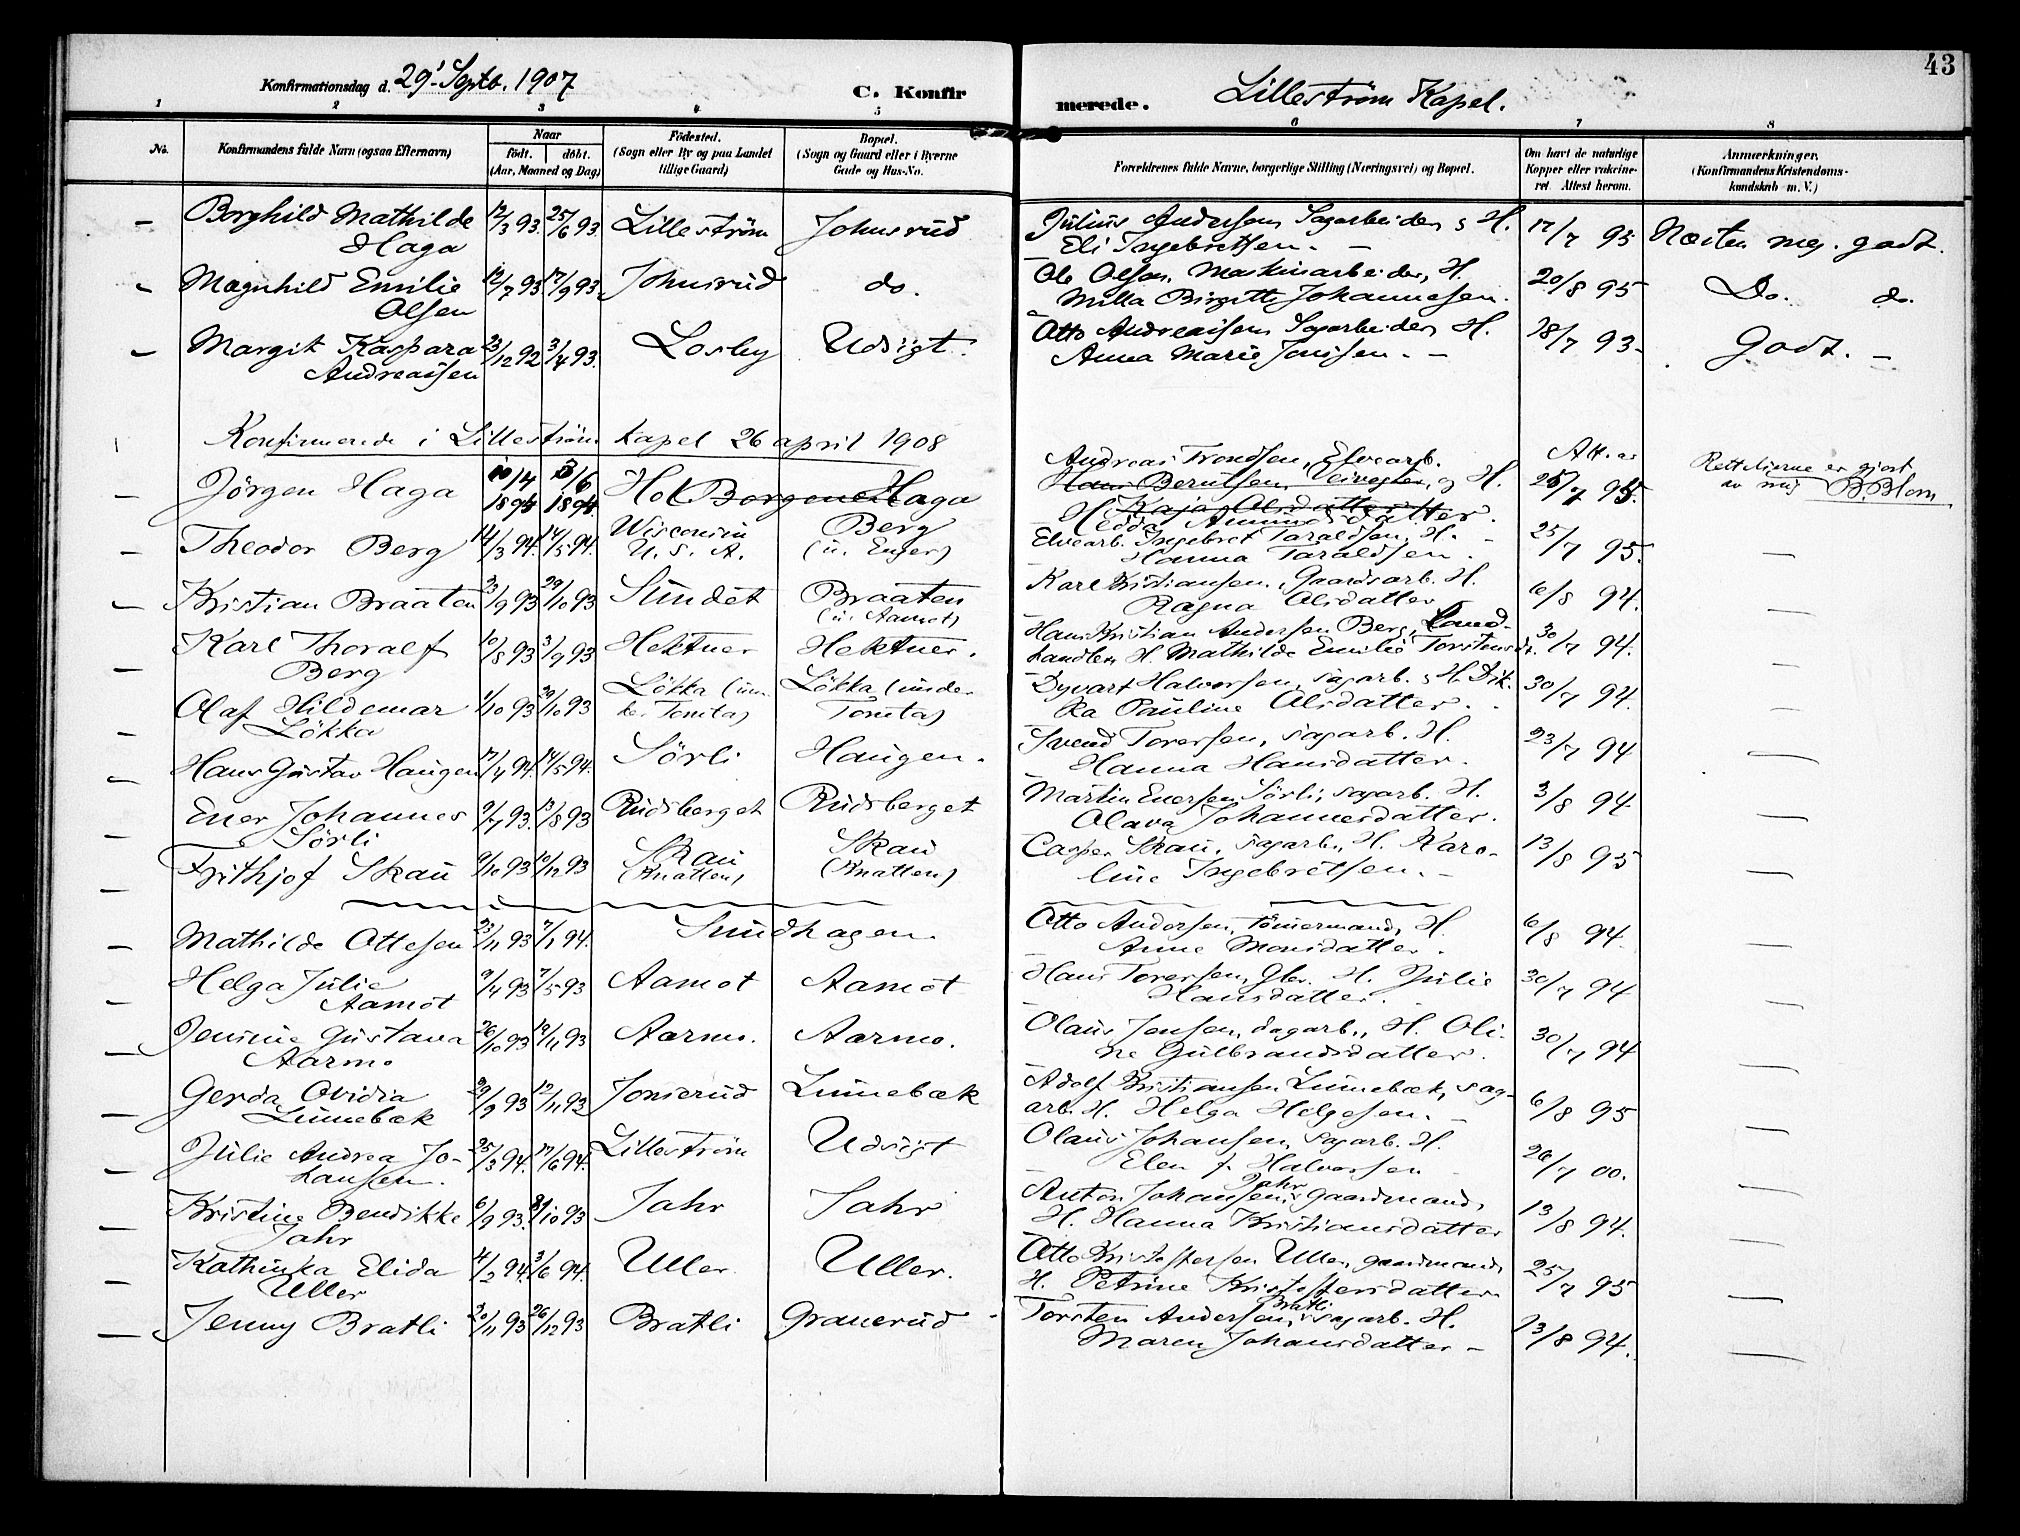 43
Konfirmationsdag d. 29' Septb. 1907 C. Konfirmerede. Lillestrøm Kapel.
1 2 3 4 5 6 7 8
No. Konfirmandens fulde Navn (ogsaa Efternavn) Naar født. døbt. (Aar, Maaned og Dag) Fødested. (Sogn eller By og paa Landet tillige Gaard) Bopæl. (Sogn og Gaard eller i Byerne Gade og Hus-No. Forældrenes fulde Navne, borgerlige Stilling (Næringsvei) og Bopæl. Om havt de naturlige Kopper eller vakcineret. Attest herom. Anmærkninger. (Konfirmandens Kristendomskundskab m. V.)
— Borghild Mathilde 12/3 93. 25/6 93. Lillestrøm Johnsrud Julius Andersen Sagarbeider & H. 17/7 95 Næsten meg. godt.
Haga Eli Ingebretsen. —
— Magnhild Emilie 12/7 93 17/9 93. Johnsrud do. Ole Olsen, Maskinarbeider, H. 20/8 95 Do. do.
Olsen Milla Birgitte Johannesen.
— Margit Kaspara 23/12 92 3/4 93. Losby Udsigt. Otto Andreassen Sagarbeider H. 18/7 93 Godt. —
Andreassen Anna Marie Jonsen. —
Konfirmerede i Lillestrøm kapel 26 april 1908
— Jørgen Haga 10/4 1894 3/6 1894 Hol Borgen Haga Andreas Trondsen, Elvearb. Att. 25/7 95. Rettelserne er gjort
Hans Berntsen, Veivogter, og H. av mig B. Blom
Kaja Olsdatter
Hedda Amundsdatter.
— Theodor Berg 14/3 94. 14/5 94. Wisconsin Berg Elvearb. Ingebret Taraldsen, H. — 25/7 95. —
U. S. A. (u. Enger) Hanna Taraldsen.
— Kristian Braaten 23/9 93 29/10 93 Sundet Braaten Karl Kristiansen, Gaardsarb. H. 6/8 94. —
(u. Aamot) Ragna Olsdatter
— Karl Thoralf 10/8 93 3/9 93 Hektner Hektner. Hans Kristian Andersen Berg, Land- 30/7 94. —
Berg handler, H. Mathilde Emilie Torstensdr.
— Olaf Hildemar 1/10 93 29/10 93 Løkka (un- Løkka (under Dyvart Halvorsen, sagarb. & H. Dik- 30/7 94. —
Løkka Tomta) ka Pauline Olsdatter.
— Hans Gustav Haugen 17/4 94. 14/5 94. Sørli Haugen. Svend Toversen, sagarb. H. 23/7 94 —
Hanna Hansdatter.
— Ener Johannes 9/7 93. 13/8 93 Rudsberget Rudsberget Martin Enersen Sørli, sagarb. H. 3/8 94 —
Sørli Olava Johannesdatter.
— Frithjof Skau 9/10 93 10/12 93 Skau Skau Casper Skau, sagarb., H. Karo- 13/8 95 —
(Knatten) (Knatten) line Ingebretsen. —
— Mathilde Ottesen 23/11 93 7/1 94. Sundhagen. Otto Andersen, tømmermand, H. 6/8 94. —
Anne Monsdatter.
— Helga Julie 9/4 93 7/5 93 Aamot Aamot Hans Toversen, Gbr. H. Julie 30/7 94 —
Aamot Hansdatter.
— Jennie Gustava 26/10 93 19/11 93 Aarmo. Aarmo. Olaus Jensen, dagarb., H. Oli- 30/7 94 —
Aarmo ne Gulbrandsdatter.
— Gerda Ovidia 29/9 93 12/11 93 Jonserud Linnebæk Adolf Kristiansen Linnebæk, sag- 6/8 95 —
Linnebæk arb. H. Helga Helgesen. —
— Julie Andrea Jo- 25/3 94. 17/6 94. Lillestrøm Udsigt Olaus Johansen, sagarb. H. 26/7 00. —
hansen. Elen f. Halvorsen
— Kristine Bendikke 6/9 93. 8/10 93 Jahr Jahr Anton Johansen Jahr, gaardmand, 13/8 94. —
Jahr H. Hanna Kristiansdatter
— Kathinka Elida 4/2 94. 3/6 94. Uller Uller. Otto Kristoffersen Uller, gaardmand 25/7 95 —
Uller H. Petrine Kristoffersdatter
— Jenny Bratli 20/11 93 26/12 93 Bratli Granerud Torsten Andersen Bratli, sagarb. H. 13/8 94. —
Maren Johansdatter —